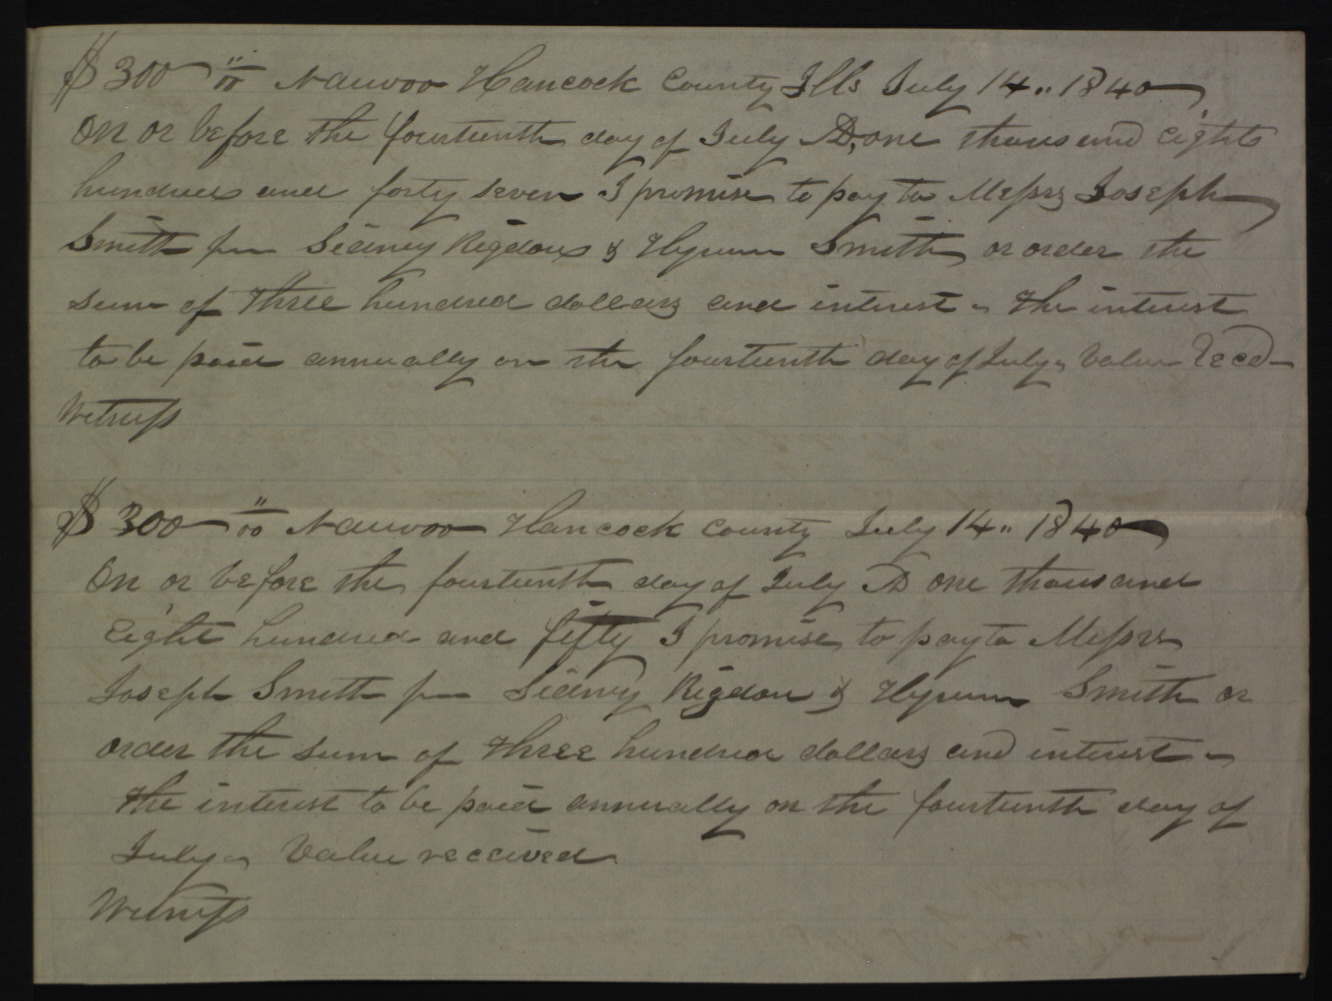 $300 "/00 Nauvoo Hancock County Ills July 14,, 1840
On or before the fourteenth day of July AD, one thousand eight
hundred and forty seven I promise to pay to Messrs Joseph
Smith jun Sidney Rigdon & Hyrum Smith or order the
sum of three hundred dollars and interest - the interest
to be paid annually on the fourteenth day of July, Value Recd
Witness
$300 "/00 Nauvoo Hancock county July 14,, 1840
On or before the fourteenth day of July AD one thousand
Eight hundred and fifty I promise to pay to Messrs
Joseph Smith jun Sidney Rigdon & Hyrum Smith or
order the sum of three hundred dollars and interest -
the interest to be paid annually on the fourteenth day of
July - Value received
Witness